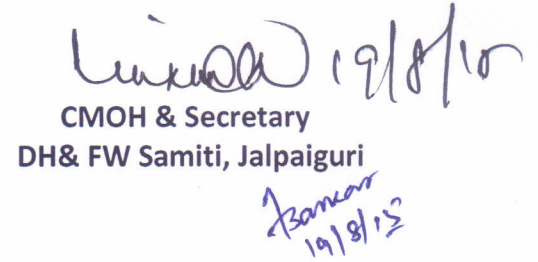 19/8/15
CMOH & Secretary
DH& FW Samiti, Jalpaiguri
19/8/15